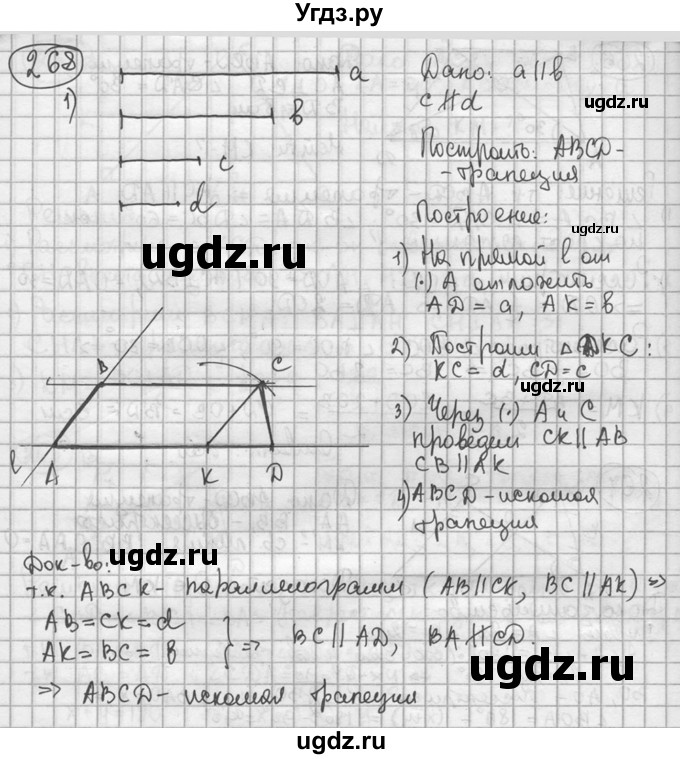 Угдз.ру
268
1)
a
b
c
d
Дано: a∥b
c∦d
ugdz.ru
Построить: ABCD-
-трапеция
Построение:
ugdz.ru
1) На прямой l от
(·) A отложить
AD = a, AK = b
2) Построим △DKC:
KC = d, CD = c
ugdz.ru
3) Через (·) A и C
проведем CK∥AB
CB∥AK
4) ABCD - искомая
трапеция
B
C
l
A
K
D
ugdz.ru
Док-во:
т.к. ABCK - параллелограмм (AB∥CK, BC∥AK) =>
AB = CK = d
AK = BC = b
=> BC∥AD, BA∦CD.
ugdz.ru
=> ABCD - искомая трапеция
ugdz.ru